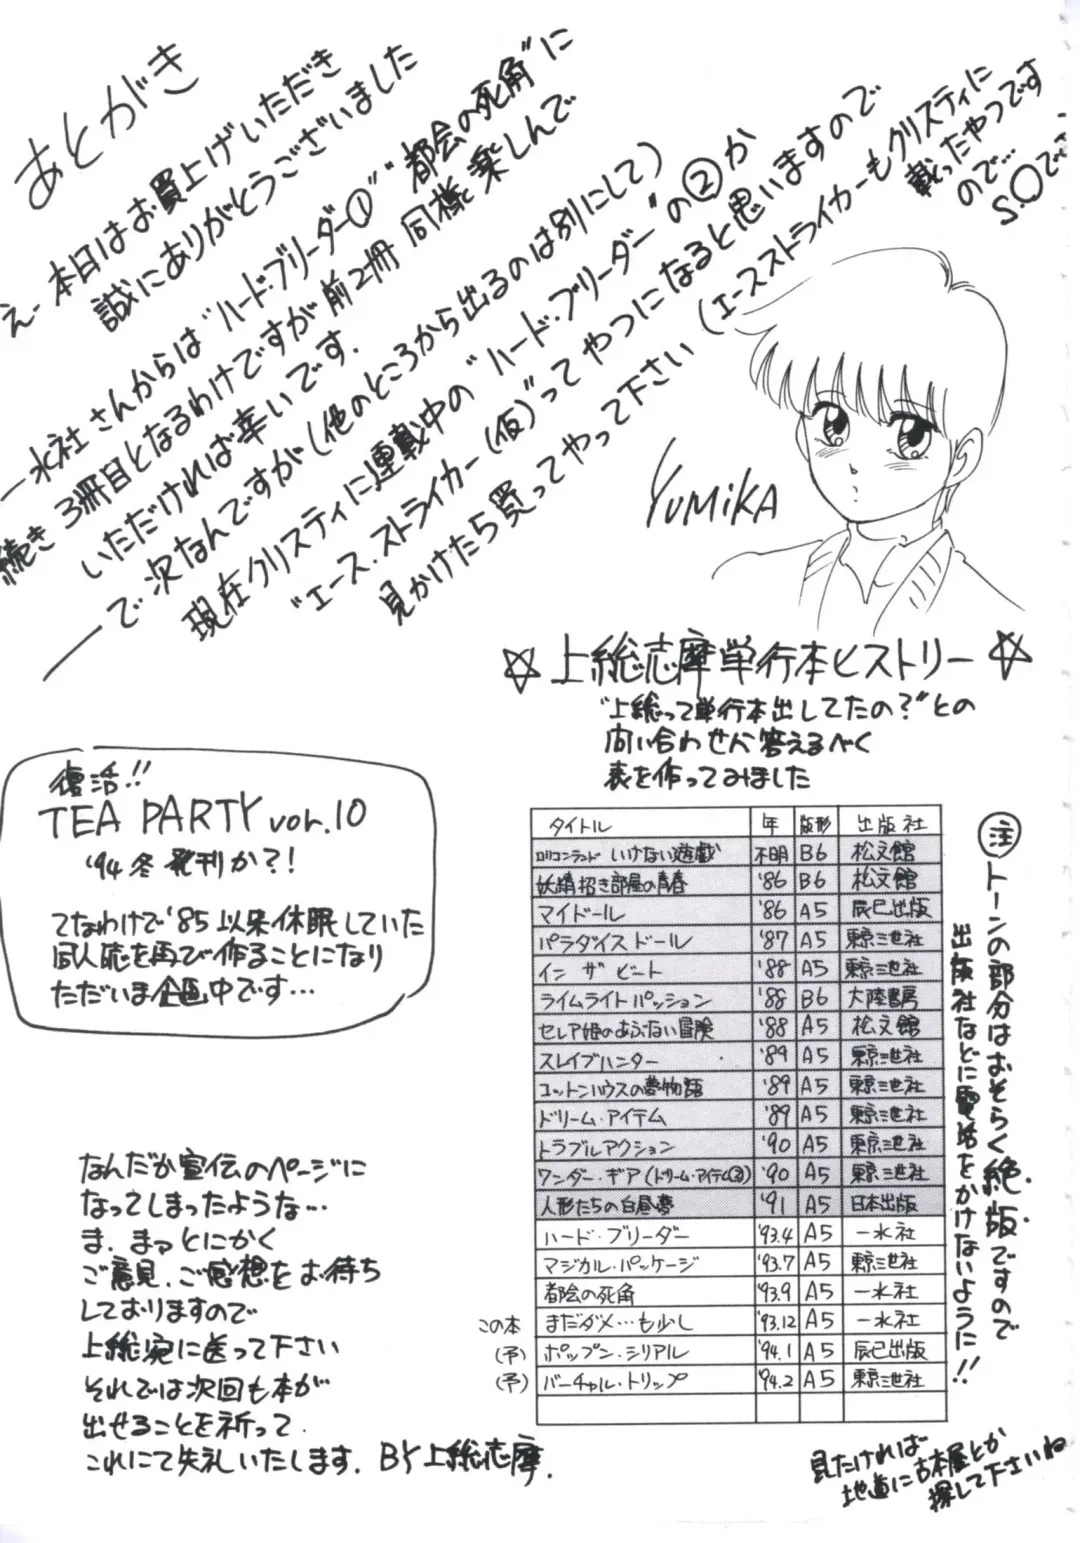 あとがき
えー本日はお買上げいただき
誠にありがとうございました
一水社さんからは"ハード・ブリーダー①""都会の死角"に
続き3冊目となるわけですが前2冊同様楽しんで
いただければ幸いです.
で次なんですが(他のところから出るのは別にして)
現在クリスティに連載中の"ハード・ブリーダー"の②か
"エース.ストライカー(仮)"ってやつになると思いますので
見かけたら買ってやって下さい(エースストライカーもクリスティに
載ったやつです
ので…
S.Oで
YUMiKA
☆上総志摩単行本ヒストリー☆
"上総って単行本出してたの?"との
問い合わせに答えるべく
表を作ってみました
復活!!
TEA PARTY vol.10
'94冬発刊か?!
てなわけで'85以来休眠していた
同人誌を再び作ることになり
ただいま企画中です…
タイトル 年 版形 出版社
ロリコンランド いけない遊戯 不明 B6 松文館
妖精招き部屋の青春 '86 B6 松文館
マイドール '86 A5 辰巳出版
パラダイスドール '87 A5 東京三世社
イン ザ ビート '88 A5 東京三世社
ライムライトパッション '88 B6 大陸書房
セレア姫のあぶない冒険 '88 A5 松文館
スレイブハンター '89 A5 東京三世社
コットンハウスの夢物語 '89 A5 東京三世社
ドリーム・アイテム '89 A5 東京三世社
トラブルアクション '90 A5 東京三世社
ワンダー・ギア(ドリーム・アイテム②) '90 A5 東京三世社
人形たちの白昼夢 '91 A5 日本出版
ハード・ブリーダー '93.4 A5 一水社
マジカル・パッケージ '93.7 A5 東京三世社
都会の死角 '93.9 A5 一水社
この本 まだダメ…も少し '93.12 A5 一水社
(予) ポップン・シリアル '94.1 A5 辰巳出版
(予) バーチャル・トリップ '94.2 A5 東京三世社
注 トーンの部分はおそらく絶版ですので
出版社などに電話をかけないように!!
見たければ
地道に古本屋とか
探して下さいね
なんだか宣伝のページに
なってしまったような…
ま.まァとにかく
ご意見.ご感想をお待ち
しておりますので
上総宛に送って下さい
それでは次回も本が
出せることを祈って.
これにて失礼いたします. BY上総志摩.